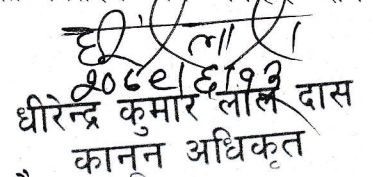 २०६९।६।१३
धीरेन्द्र कुमार लाल दास
कानून अधिकृत